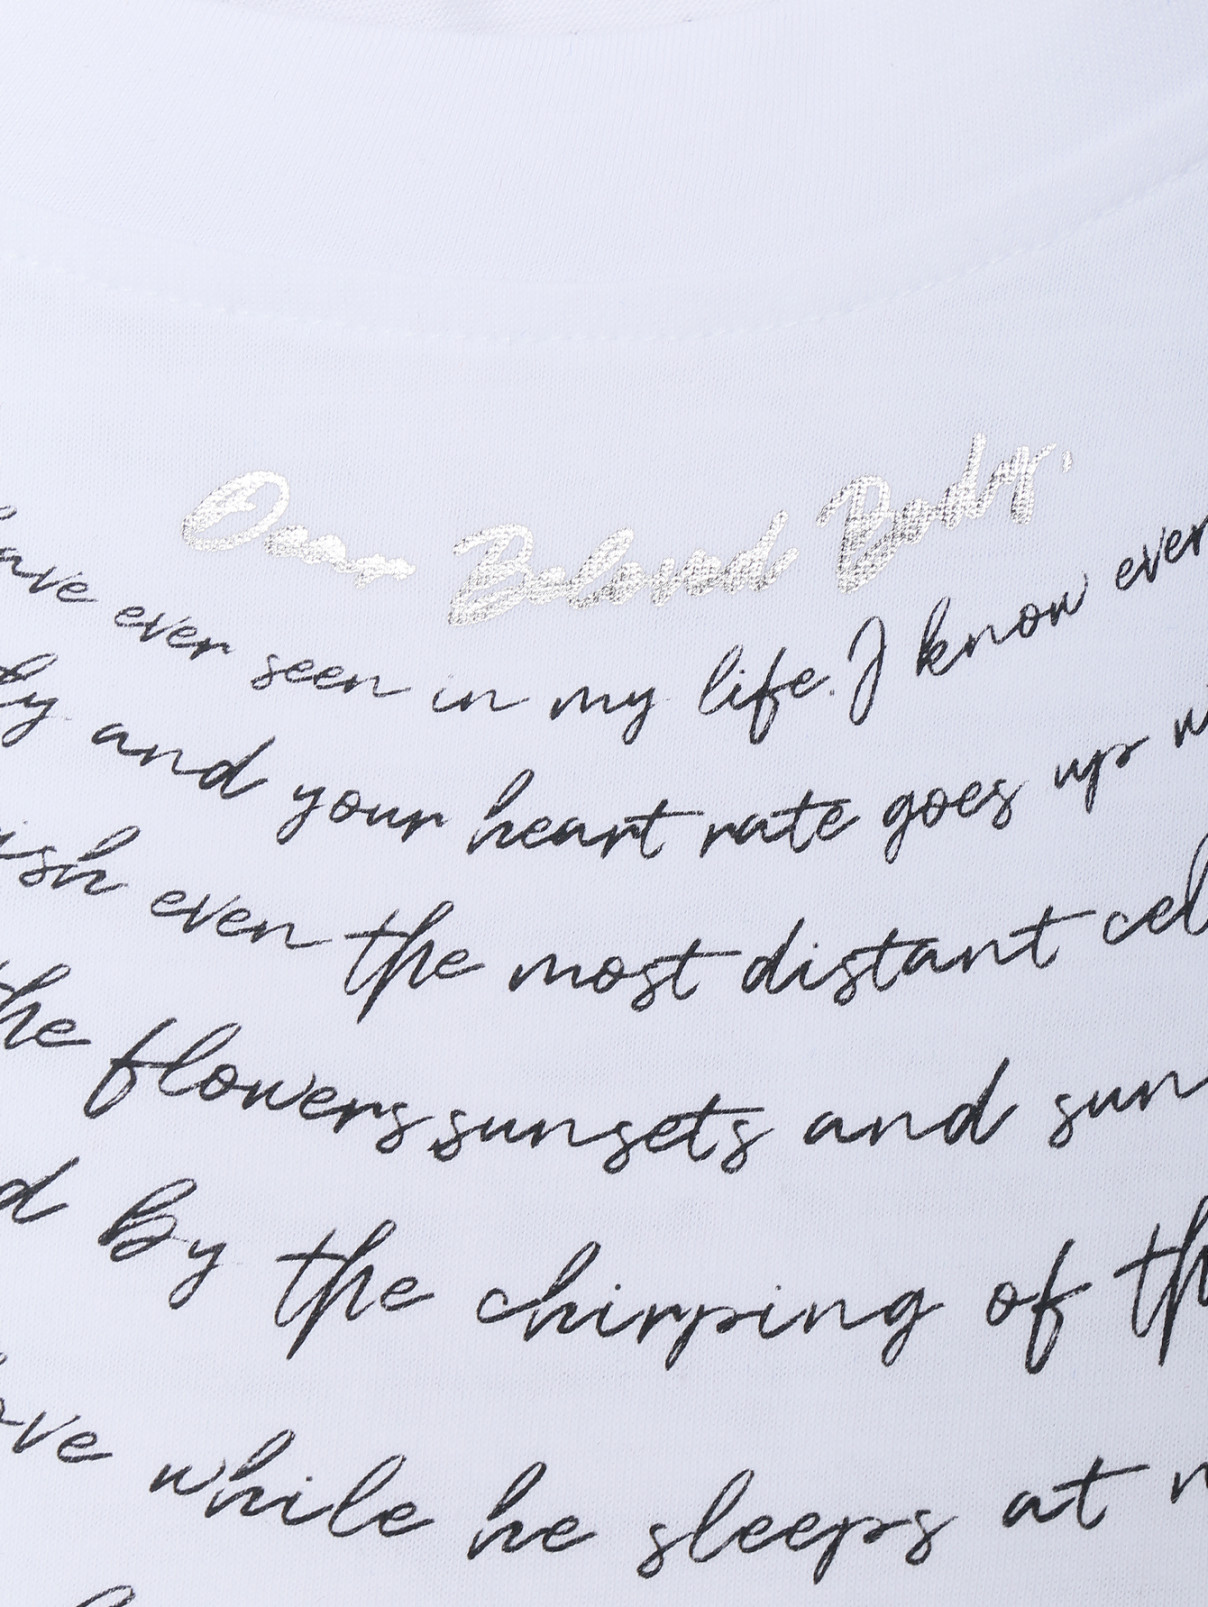 Our Beloved Body.
have ever seen in my life. I know ever
ly and your heart rate goes up w
ish even the most distant cel
the flowers, sunsets and sun
d By the chirping of th
ove while he sleeps at n